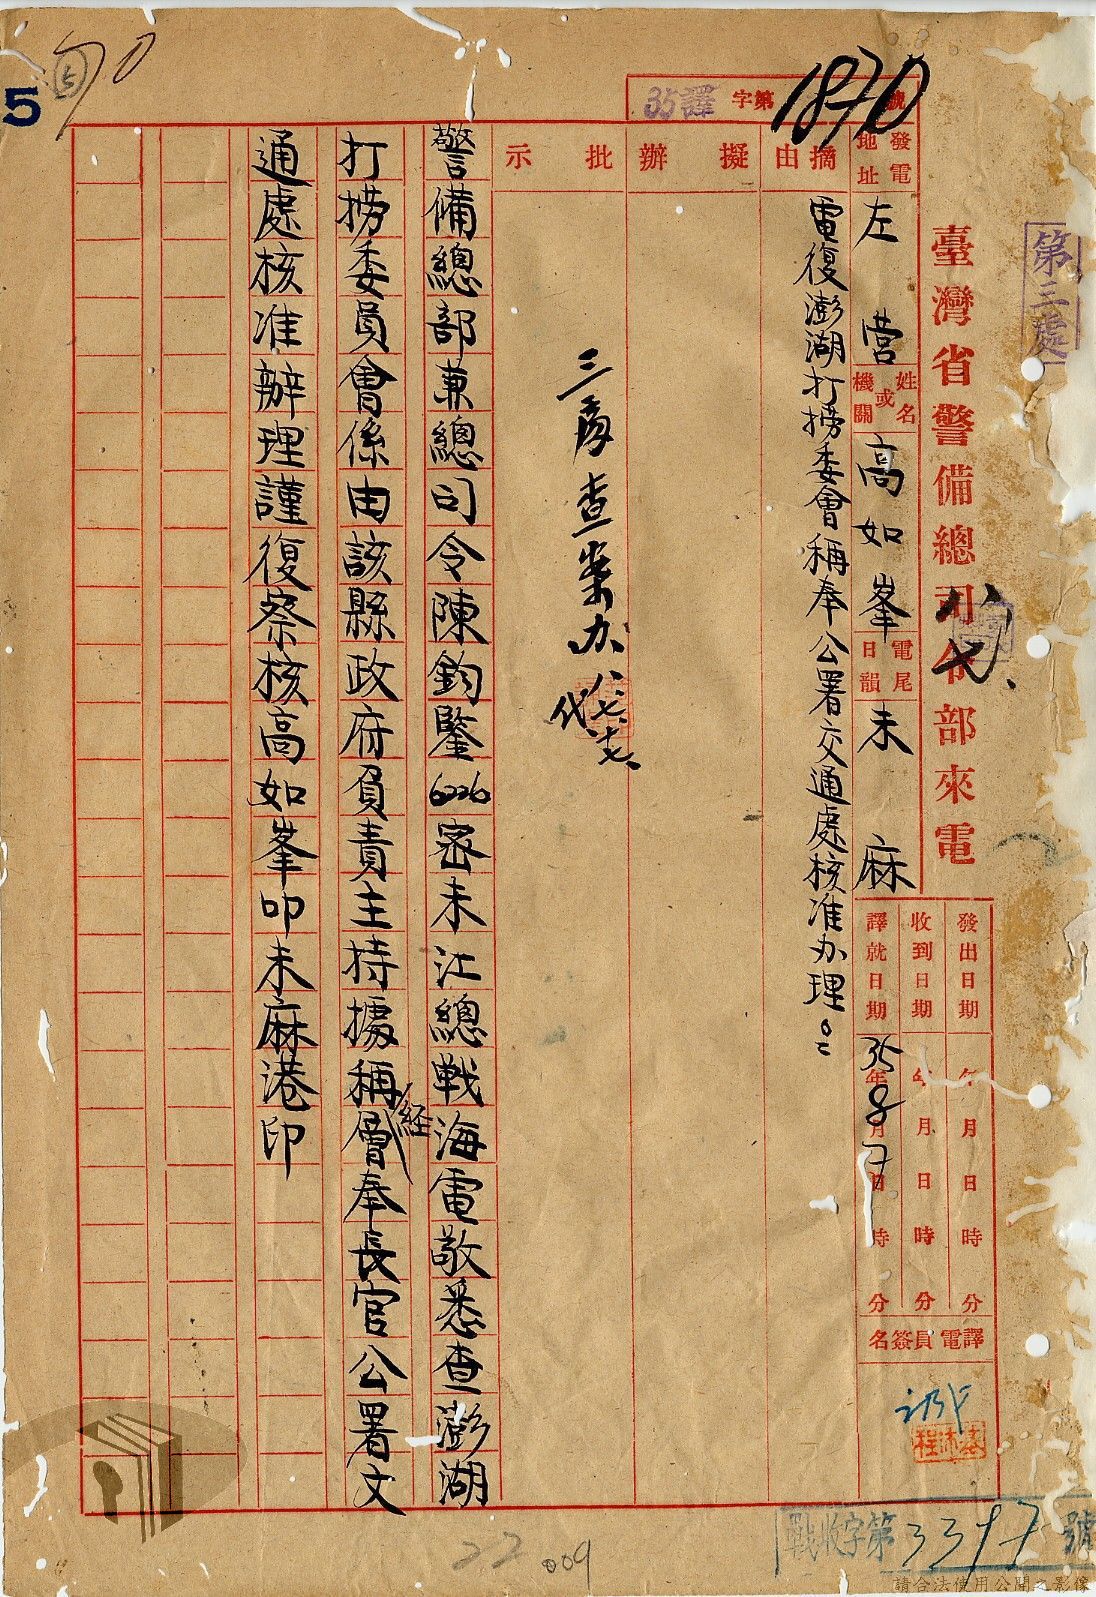 第三處
臺灣省警備總司令部來電
八、七、
35譯字第1870號
發電地址
左營
姓名或機關
高如峯
電尾日韻
未麻
發出日期 年 月 日 時 分
收到日期 年 月 日 時 分
譯就日期 35年8月7日 時 分
譯電員簽名
摘由
電復澎湖打撈委會稱奉公署交通處核准办理。
擬辦
批示
三處查案办
代 八、七、
警備總部兼總司令陳鈞鑒6226密未江總戰海電敬悉查澎湖
打撈委員會係由該縣政府負責主持據稱經奉長官公署交
通處核准辦理謹復察核高如峯叩未麻港印
戰收字第3397號
5
5
22
009
請合法使用公開之影像